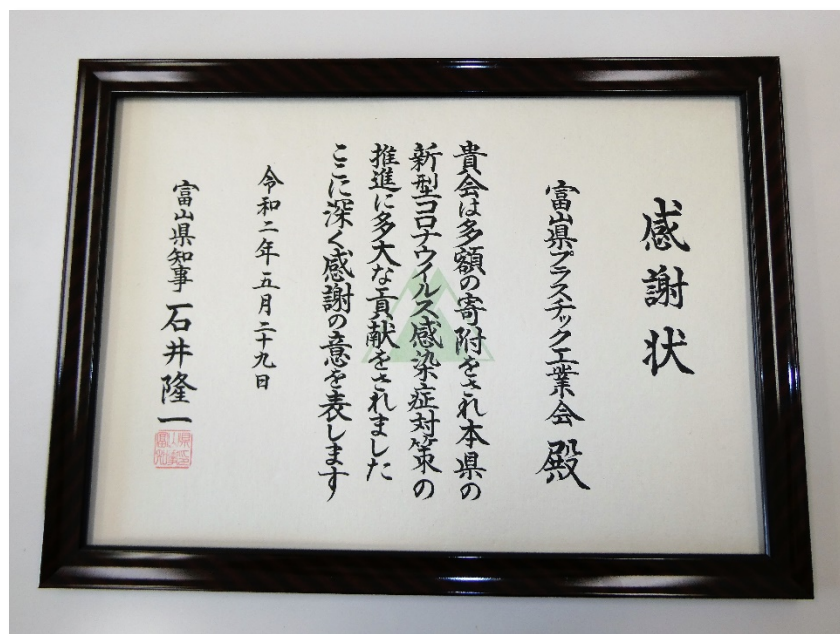 感謝状
富山県プラスチック工業会 殿
貴会は多額の寄附をされ本県の
新型コロナウイルス感染症対策の
推進に多大な貢献をされました
ここに深く感謝の意を表します
令和二年五月二十九日
富山県知事 石井隆一